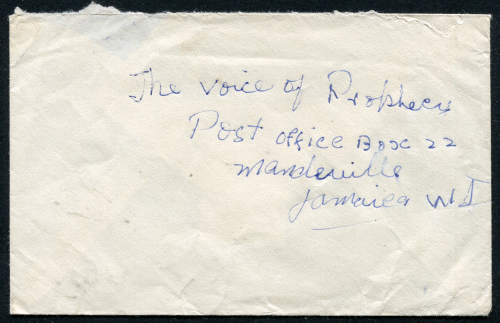 The Voice of Prophecy
Post office Box 22
Mandeville
Jamaica W I